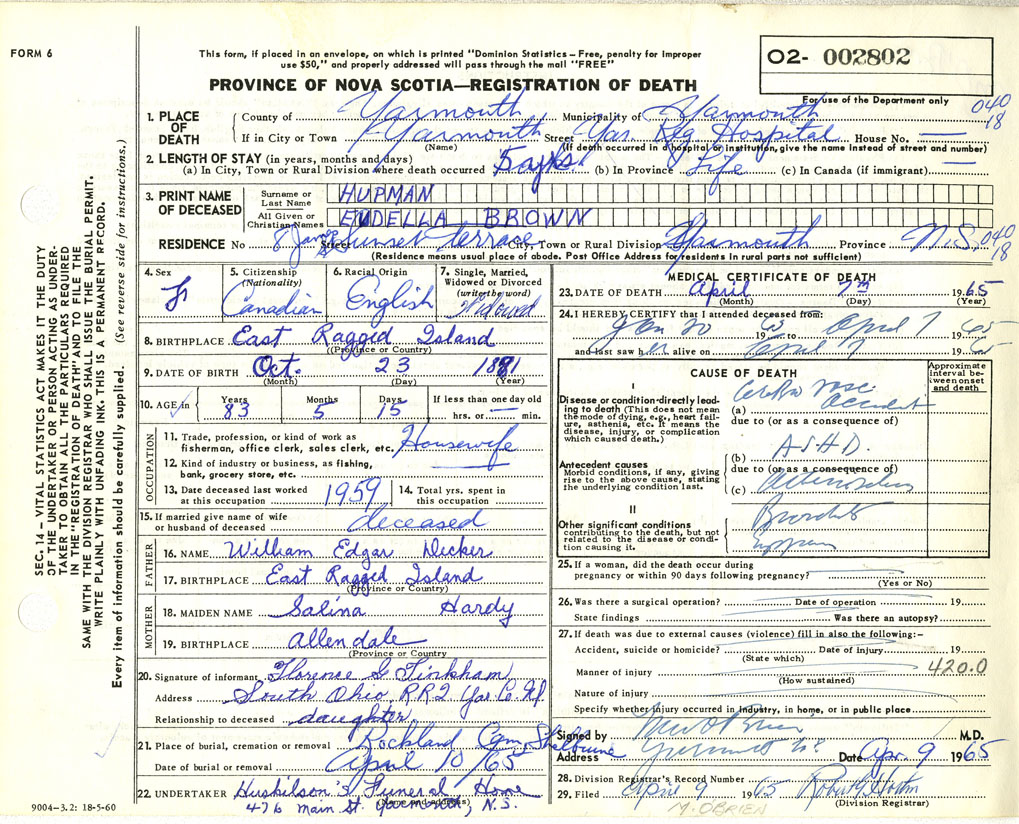 FORM 6
This form, if placed in an envelope, on which is printed "Dominion Statistics—Free, penalty for improper
use $50," and properly addressed will pass through the mail "FREE"
O2- 002802
PROVINCE OF NOVA SCOTIA—REGISTRATION OF DEATH
For use of the Department only
040
18
1. PLACE OF DEATH
County of Yarmouth Municipality of Yarmouth
If in City or Town Yarmouth Street Yar. Reg Hospital House No. —
(Name) (If death occurred in a hospital or institution, give the name instead of street and number)
2. LENGTH OF STAY (in years, months and days)
(a) In City, Town or Rural Division where death occurred 5 (b) In Province Life (c) In Canada (if immigrant) —
3. PRINT NAME OF DECEASED
Surname or Last Name HUPMAN
All Given or Christian Names EUDELLA BROWN
RESIDENCE No 8 Street Sunset Terrace City, Town or Rural Division Yarmouth Province N.S. 040
18
(Residence means usual place of abode. Post Office Address for residents in rural parts not sufficient)
4. Sex F
5. Citizenship (Nationality) Canadian
6. Racial Origin English
7. Single, Married, Widowed or Divorced (write the word) Widowed
8. BIRTHPLACE East Ragged Island
(Province or Country)
9. DATE OF BIRTH Oct. 23 1881
(Month) (Day) (Year)
10. AGE in Years 83 Months 5 Days 15 If less than one day old
hrs. or — min.
OCCUPATION
11. Trade, profession, or kind of work as
fisherman, office clerk, sales clerk, etc. Housewife
12. Kind of industry or business, as fishing,
bank, grocery store, etc. —
13. Date deceased last worked
at this occupation 1959
14. Total yrs. spent in
this occupation
15. If married give name of wife
or husband of deceased deceased
FATHER
16. NAME William Edgar Decker
17. BIRTHPLACE East Ragged Island
(Province or Country)
MOTHER
18. MAIDEN NAME Salina Hardy
19. BIRTHPLACE Allendale
(Province or Country)
20. Signature of informant Florence G Tinkham
Address South Ohio, R.R.2 Yar. Co. N.S.
Relationship to deceased daughter
21. Place of burial, cremation or removal Rockland Cem, Shelburne
Date of burial or removal April 10/65
22. UNDERTAKER Huskilson's Funeral Home
(Name and address)
476 Main St. Yarmouth, N.S.
MEDICAL CERTIFICATE OF DEATH
23. DATE OF DEATH April 7th 1965
(Month) (Day) (Year)
24. I HEREBY CERTIFY that I attended deceased from:
Jan 20 1965 to April 7 1965
and last saw her alive on April 7 1965
CAUSE OF DEATH
Approximate interval between onset and death
I
Disease or condition directly leading to death (This does not mean
the mode of dying, e.g., heart failure, asthenia, etc. It means the
disease, injury, or complication
which caused death.)
(a) Accident
due to (or as a consequence of)
Antecedent causes
Morbid conditions, if any, giving
rise to the above cause, stating
the underlying condition last.
(b) A.S.H.D.
due to (or as a consequence of)
(c)
II
Other significant conditions
contributing to the death, but not
related to the disease or condition causing it.
25. If a woman, did the death occur during
pregnancy or within 90 days following pregnancy?
(Yes or No)
26. Was there a surgical operation? Date of operation 19
State findings Was there an autopsy?
27. If death was due to external causes (violence) fill in also the following:—
Accident, suicide or homicide? Date of injury 19
(State which)
Manner of injury 420.0
(How sustained)
Nature of injury
Specify whether injury occurred in industry, in home, or in public place
Signed by M.D.
Address Yarmouth N.S. Date Apr. 9 1965
28. Division Registrar's Record Number
29. Filed April 9 1965
(Division Registrar)
M. O'BRIEN
SEC. 14 — VITAL STATISTICS ACT MAKES IT THE DUTY
OF THE UNDERTAKER OR PERSON ACTING AS UNDERTAKER TO OBTAIN ALL THE PARTICULARS REQUIRED
IN THE "REGISTRATION OF DEATH" AND TO FILE THE
SAME WITH THE DIVISION REGISTRAR WHO SHALL ISSUE THE BURIAL PERMIT.
WRITE PLAINLY WITH UNFADING INK. THIS IS A PERMANENT RECORD.
Every item of information should be carefully supplied. (See reverse side for instructions.)
9004-3.2: 18-5-60